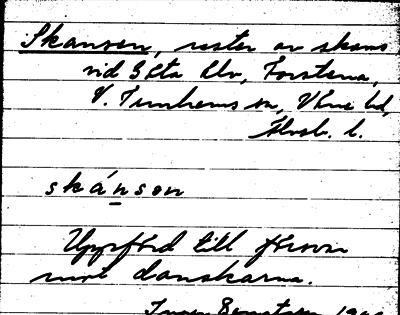 Skansen, rester av skans
vid Göta älv, Forstena,
V. Tunhems sn, Väne hd,
Älvsb. l.
skánsen
Uppförd till försvar
mot danskarna.